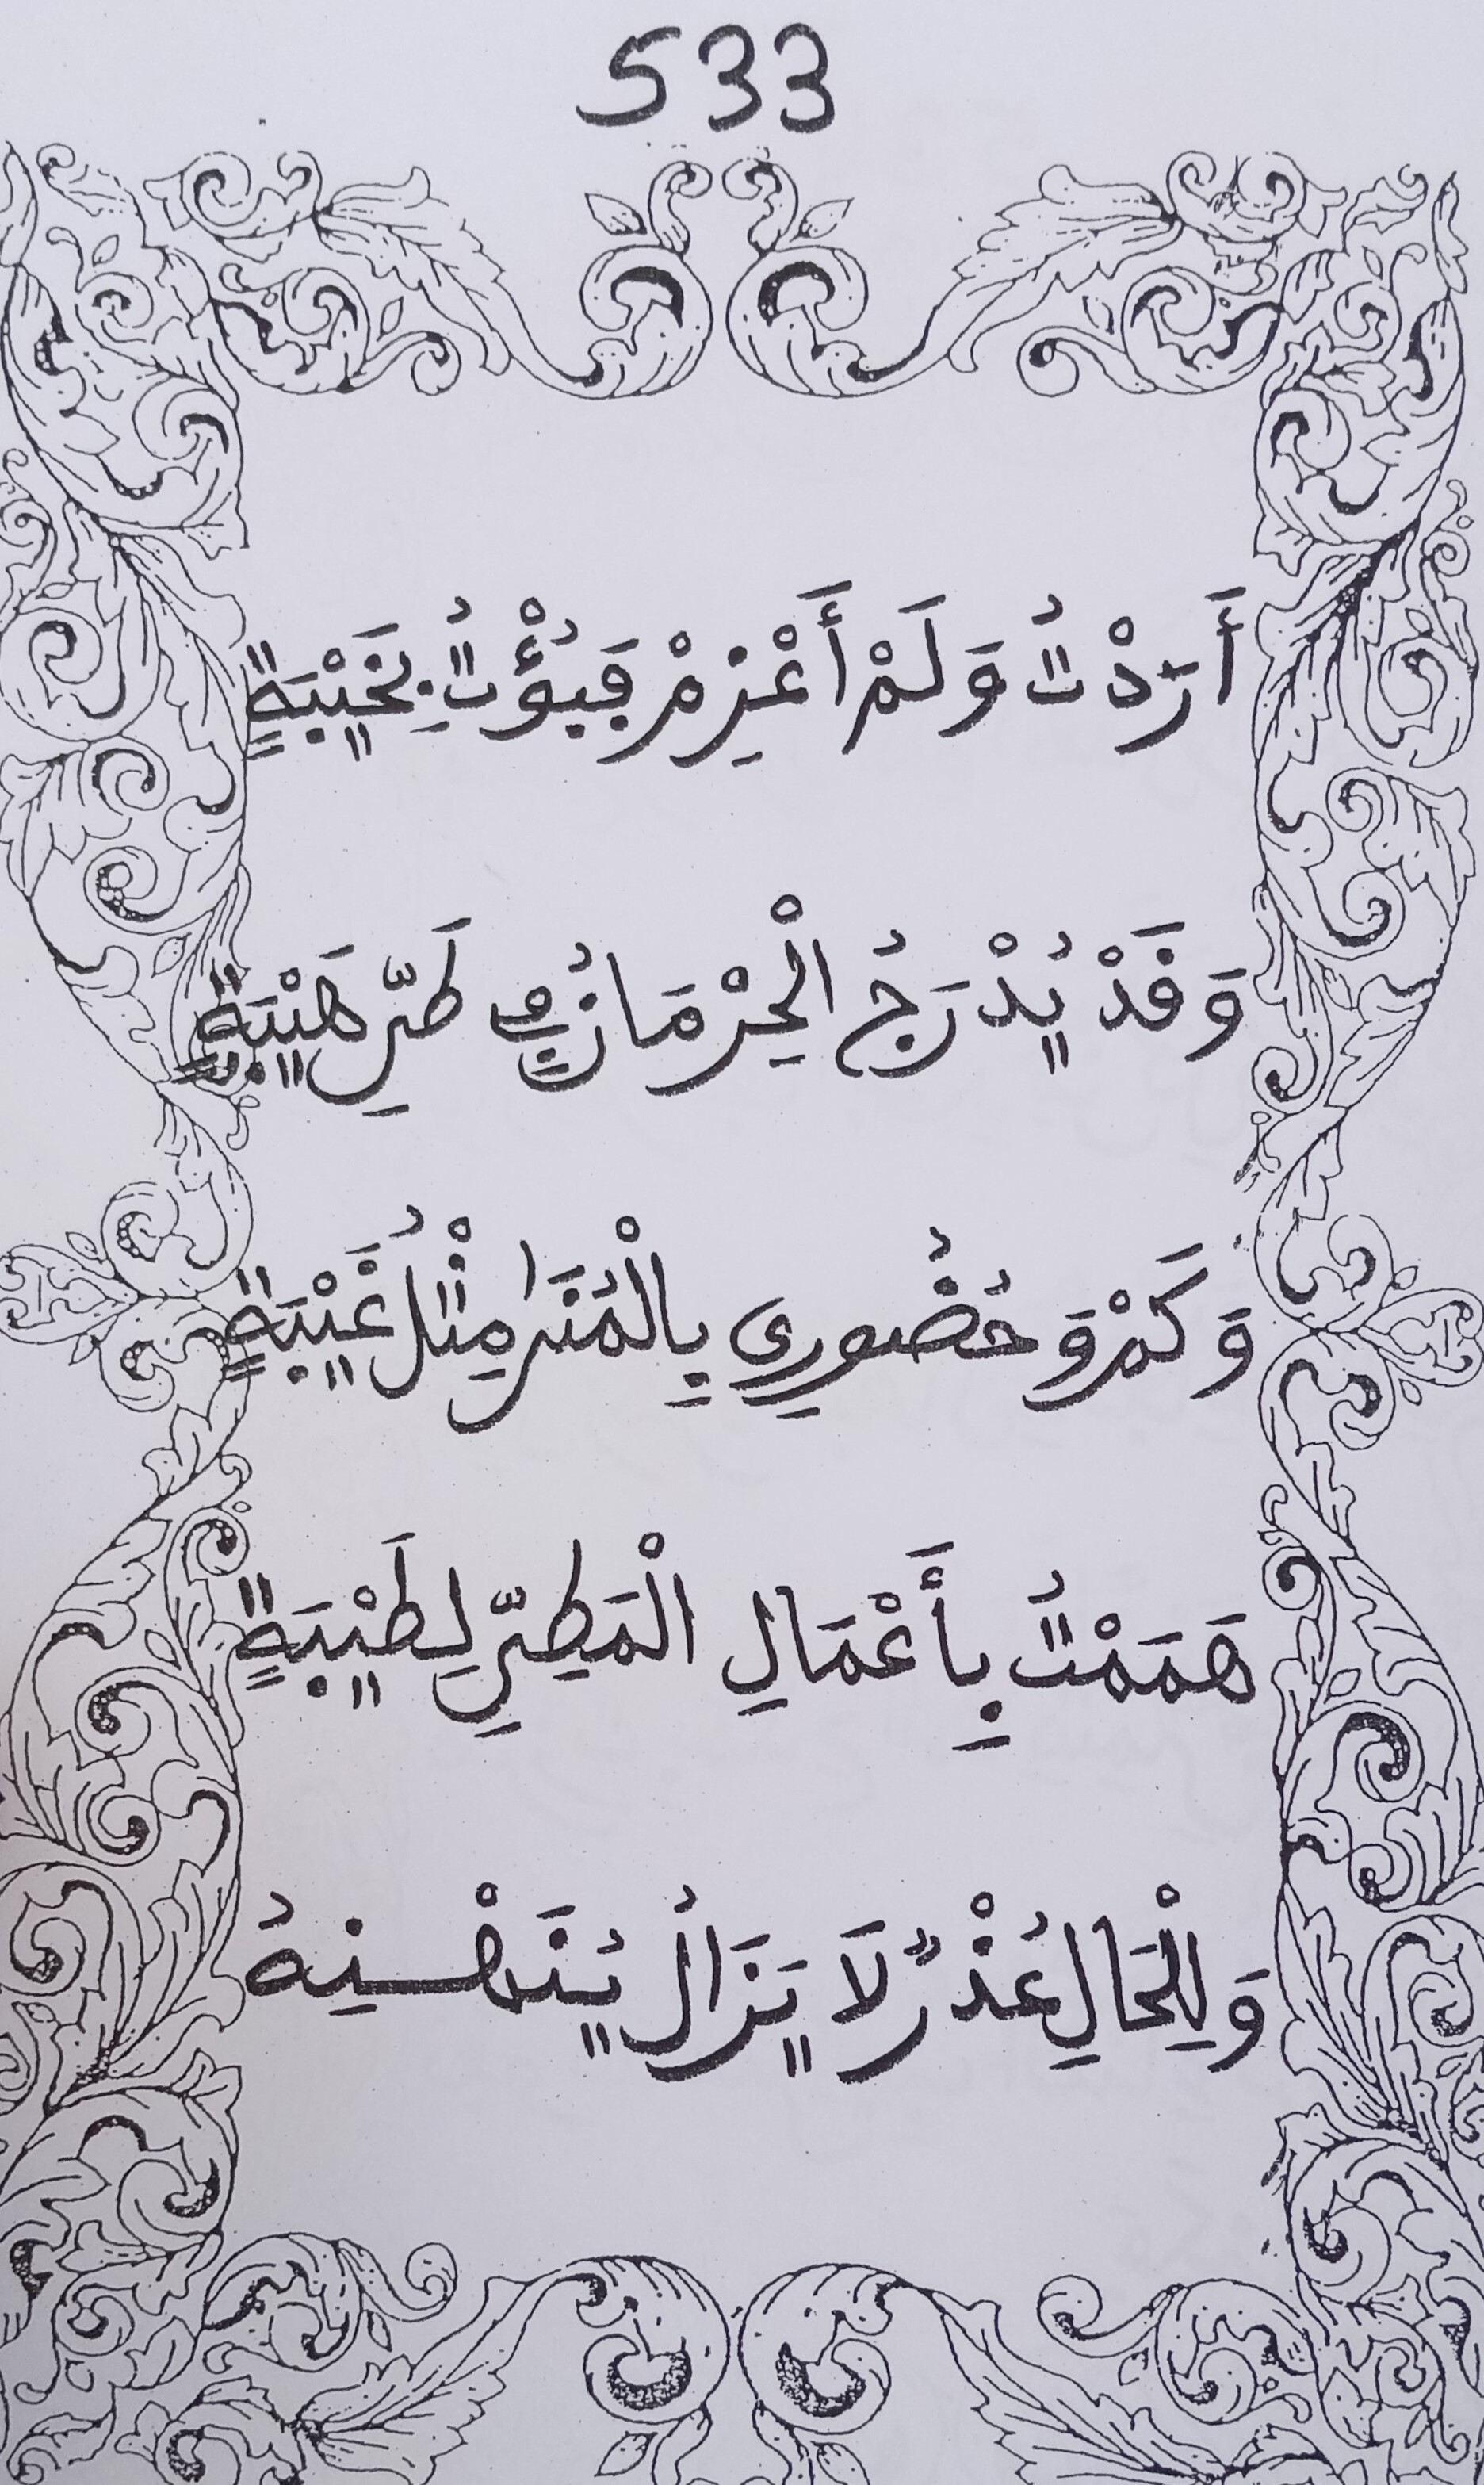 533
أَرَدْتُ وَلَمْ أَعْزِمْ فَبُؤْتُ بِخَيْبَةٍ
وَقَدْ يُدْرَجُ الْحِرْمَانُ فِي طَيِّ هَيْبَةٍ
وَكَمْ وَحُضُورِي بِالْمُنَى مِثْلُ غَيْبَةٍ
هَمَمْتُ بِأَعْمَالِ الْمَطِيِّ لِطَيْبَةٍ
وَلِلْحَالِ عُذْرٌ لَا يَزَالُ يُنَهْنِهُ